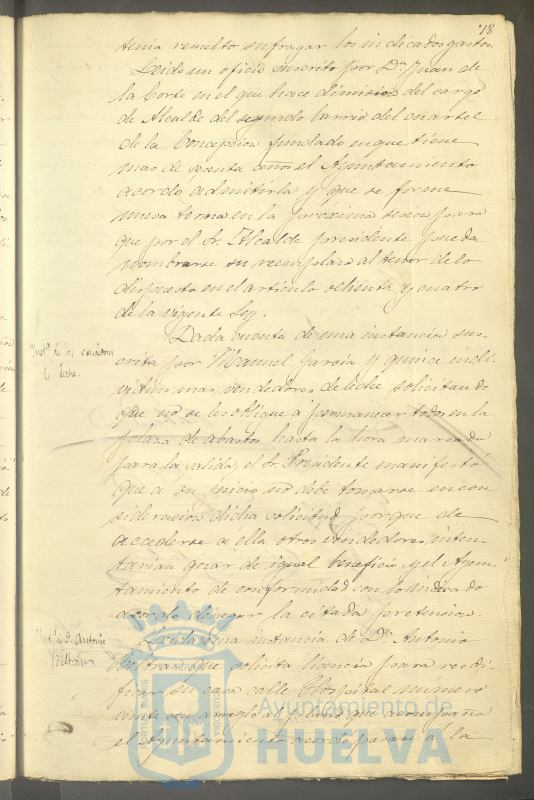 78
tenia resuelto sufragar los indicados gastos.
Leido un oficio suscrito por Dn. Juan de
la Corte en el que hace dimision del cargo
de Alcalde del segundo barrio del cuartel
de la Concepcion fundado en que tiene
mas de sesenta años el Ayuntamiento
acordo admitirla y que se forme
nueva terna en la proxima sesion para
que por el Sr. Alcalde presidente pueda
nombrarse su reemplazo al tenor de lo
dispuesto en el articulo ochenta y cuatro
de la vigente Ley.
Dada cuenta de una instancia sus-
crita por Manuel Garcia y quince indi-
viduos mas, vendedores de leche solicitando
que no se les obligue a permanecer todos en la
plaza de abastos hasta la hora marcada
para la salida, el Sr. Presidente manifesto
que a su juicio no debe tomarse en con
sideracion dicha solicitud porque de
accederse a ella otros vendedores inten-
tarian gozar de igual beneficio y el Ayun-
tamiento de conformidad con lo indicado
acordo denegar la citada pretension
Leida una instancia de Dn. Antonio
Beltran que solicita licencia para reedi
ficar su casa calle Hospital número
veinte con arreglo al plano que acompaña
el Ayuntamiento acordo pasase a la
Inst.ª de los vendedores
de leche.
Inst.ª de D. Antonio
Beltran
Ayuntamiento de
HUELVA